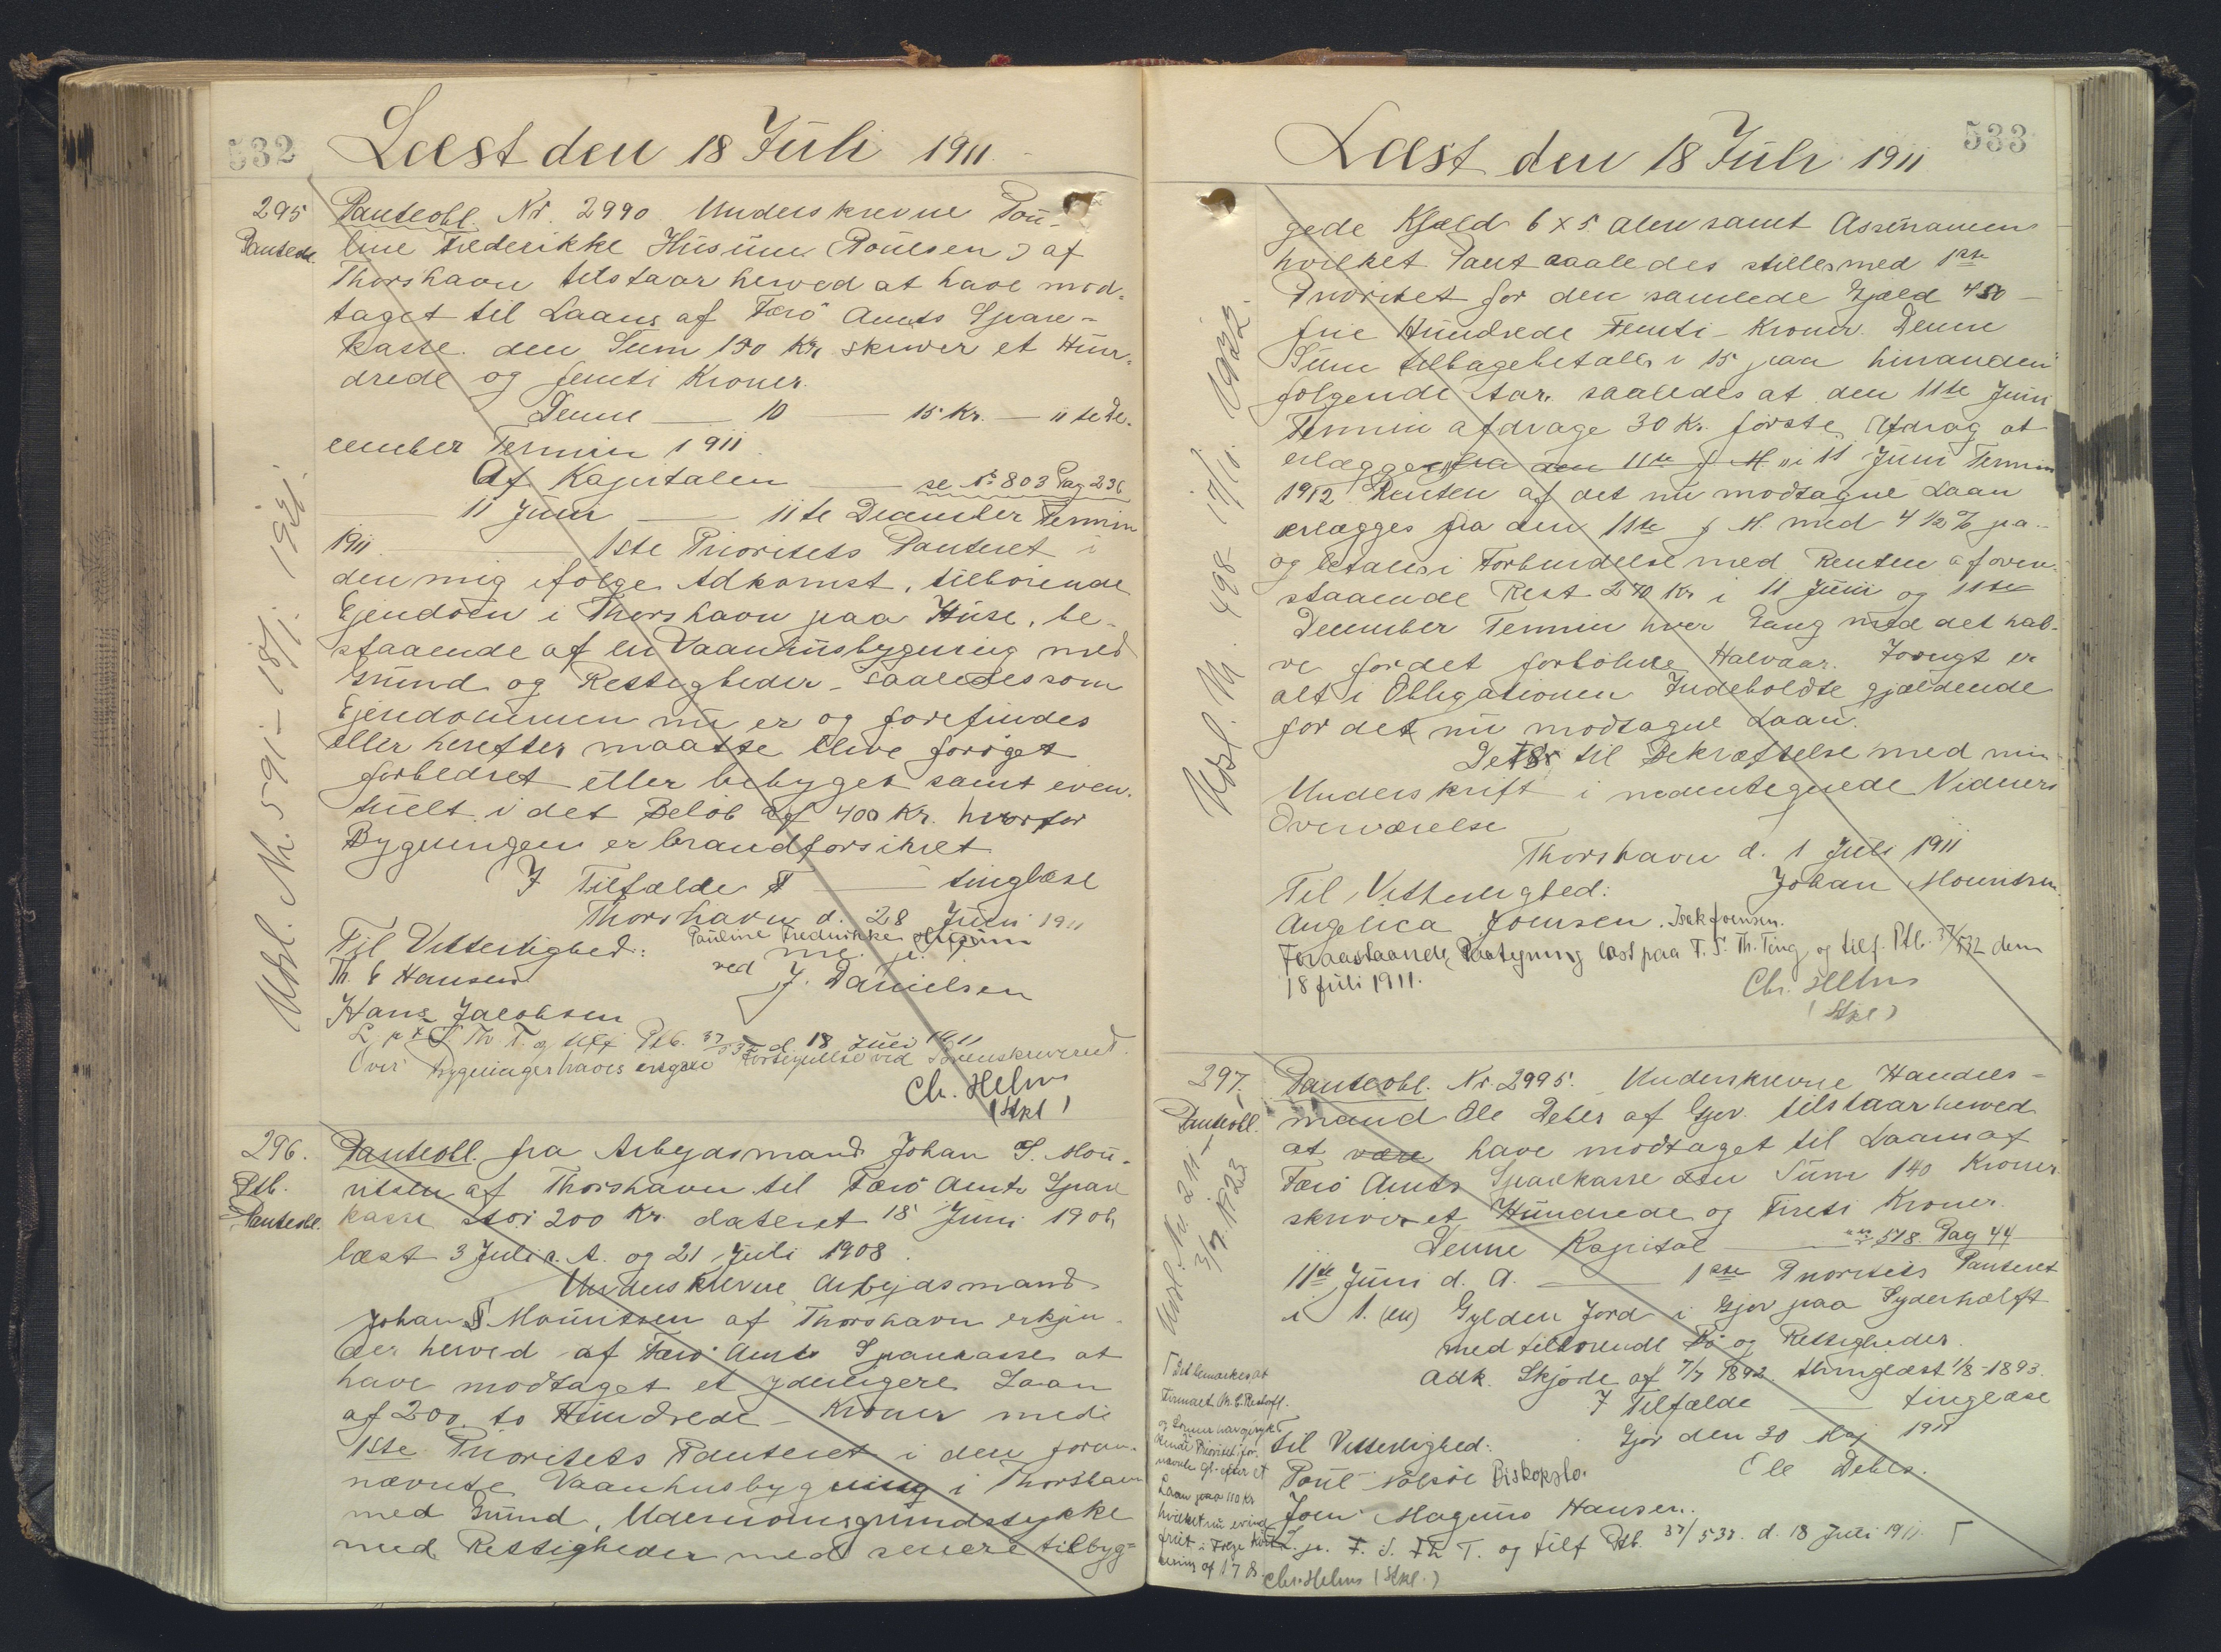 532
Læst den 18 Juli 1911.
295
Panteobl.
Panteobl. Nr. 2990. Underskrevne Pou-
line Frederikke Husum (Poulsen) af
Thorshavn tilstaar herved at have mod-
taget til Laans af Færö Amts Spare-
kasse den Sum 150 Kr. skriver et Hun-
drede og femti Kroner.
Denne — 10 — 15 Kr. — 11te De-
cember Termin 1911.
Af Kapitalen — se No 803 Pag 236
11 Juni — 11te December Termin
1911 — 1ste Prioritets Panteret i
den mig ifølge Adkomst, tilhörende
Ejendom i Thorshavn paa Huse, be-
staaende af en Vaanhusbygning med
Grund og Rettigheder - saaledes som
Ejendommen nu er og forefindes
eller herefter maatte blive foröget
forbedret eller bebygget samt even-
tuelt i det Belöb af 400 Kr. hvorfor
Bygningen er brandforsikret
I Tilfælde — tinglæse
Thorshavn d. 28 Juni 1911
Til Vitterlighed: Pauline Fredrikke Husum
m. p.
Th. C Hansen ved J. Danielsen
Hans Jacobsen
L. p. F. S. Th. T. og tilf Ptb. 37/532 d. 18 Juli 1911
Over Bygninger haves ingen Fortegnelse ved Sorenskriveriet.
Ch. Helms
(Stkl)
Udsl. Nr. 591 - 18/1. 1921.
296.
Ptb.
Panteobl.
Panteobl. fra Arbejdsmand Johan S. Mou-
ritsen af Thorshavn til Færö Amts Spare
kasse stor 200 Kr. dateret 15 Juni 1906
læst 3 Juli s. A. og 21 Juli 1908.
Underskrevne Arbejdsmand
Johan S Mouritsen af Thorshavn erkjen-
der herved af Færö Amts Sparekasse at
have modtaget et yderligere Laan
af 200. to Hundrede - Kroner med
1ste Prioritets Panteret i den foran-
nævnte Vaanhusbygning i Thorshavn
med Grund, Udenomsgrundstykke
med Rettigheder med senere tilbyg=
533
Læst den 18 Juli 1911
gede Kjæld 6 x 5 alen samt Assurancen
hvilket Pant saaledes stilles med 1ste
Prioritet for den samlede Gjæld 450 -
fire Hundrede Femti - Kroner. Denne
Sum tilbagebetales i 15 paa hinanden
fölgende Aar. saaledes at den 11te Juni
Termin afdrage 30 Kr. förste Afdrag at
erlægges fra den 11te f M i 11 Juni Termin
1912. Renten af det nu modtagne Laan
erlægges fra den 11te f M. med 4 1/2 % pa.
og betales i Forbindelse med Renten af oven-
staaende Rest 270 Kr i 11 Juni og 11te
December Termin hver Gang med det hal-
ve for det forlöbne Halvaar. Forögt er
alt i Obligationen Indeholdte gjældende
for det nu modtagne Laan.
Dets til Bekræftelse med min
Underskrift i nedentegnede Vidners
Overværelse
Thorshavn d. 1 Juli 1911
Til Vitterlighed: Johan Mouritsen.
Angelica Joensen. Isak Joensen.
Foranstaaende Paategning læst paa F. S. Th. Ting og tilf. Ptb. 37/532 den
18 juli 1911. Ch. Helms
(Stkl)
Udsl. Nr. 498 - 17/10. 1932.
297.
Panteobl.
Panteobl. Nr. 2995. Underskrevne Handels-
mand Ole Debes af Gjov tilstaar herved
at være have modtaget til Laans af
Færö Amts Sparekasse den Sum 140 Kroner
skriver et Hundrede og Fireti Kroner.
Denne Kapital — 518. Pag 44
11te Juni d. A. — 1ste Prioritets Panteret
i 1. (en) Gylden Jord i Gjov paa Syderhælft
med tilhörende Fö og Rettigheder.
Adk. Skjöde af 7/7 1892. thinglæst 1/8-1893.
I Tilfælde — tinglæse
Gjov den 30 Maj 1911
Til Vitterlighed: Ole Debes.
Poul Nolsöe Biskopstö.
Joen Magnus Hansen.
L. p. F. S. Th T. og tilf Ptb. 37/533. d. 18 Juli 1911.
Chr. Helms (Stkl.)
Udsl. Nr. 211 -
3/7. 1923
Det bemærkes at
Firmaet M. C. Restorff
og Sönner har
Prioritet i for-
nævnte Gl. efter et
Laan paa 110 Kr
hvilket nu er ind-
friet i Følge Kvit-
tering af 17 ds.